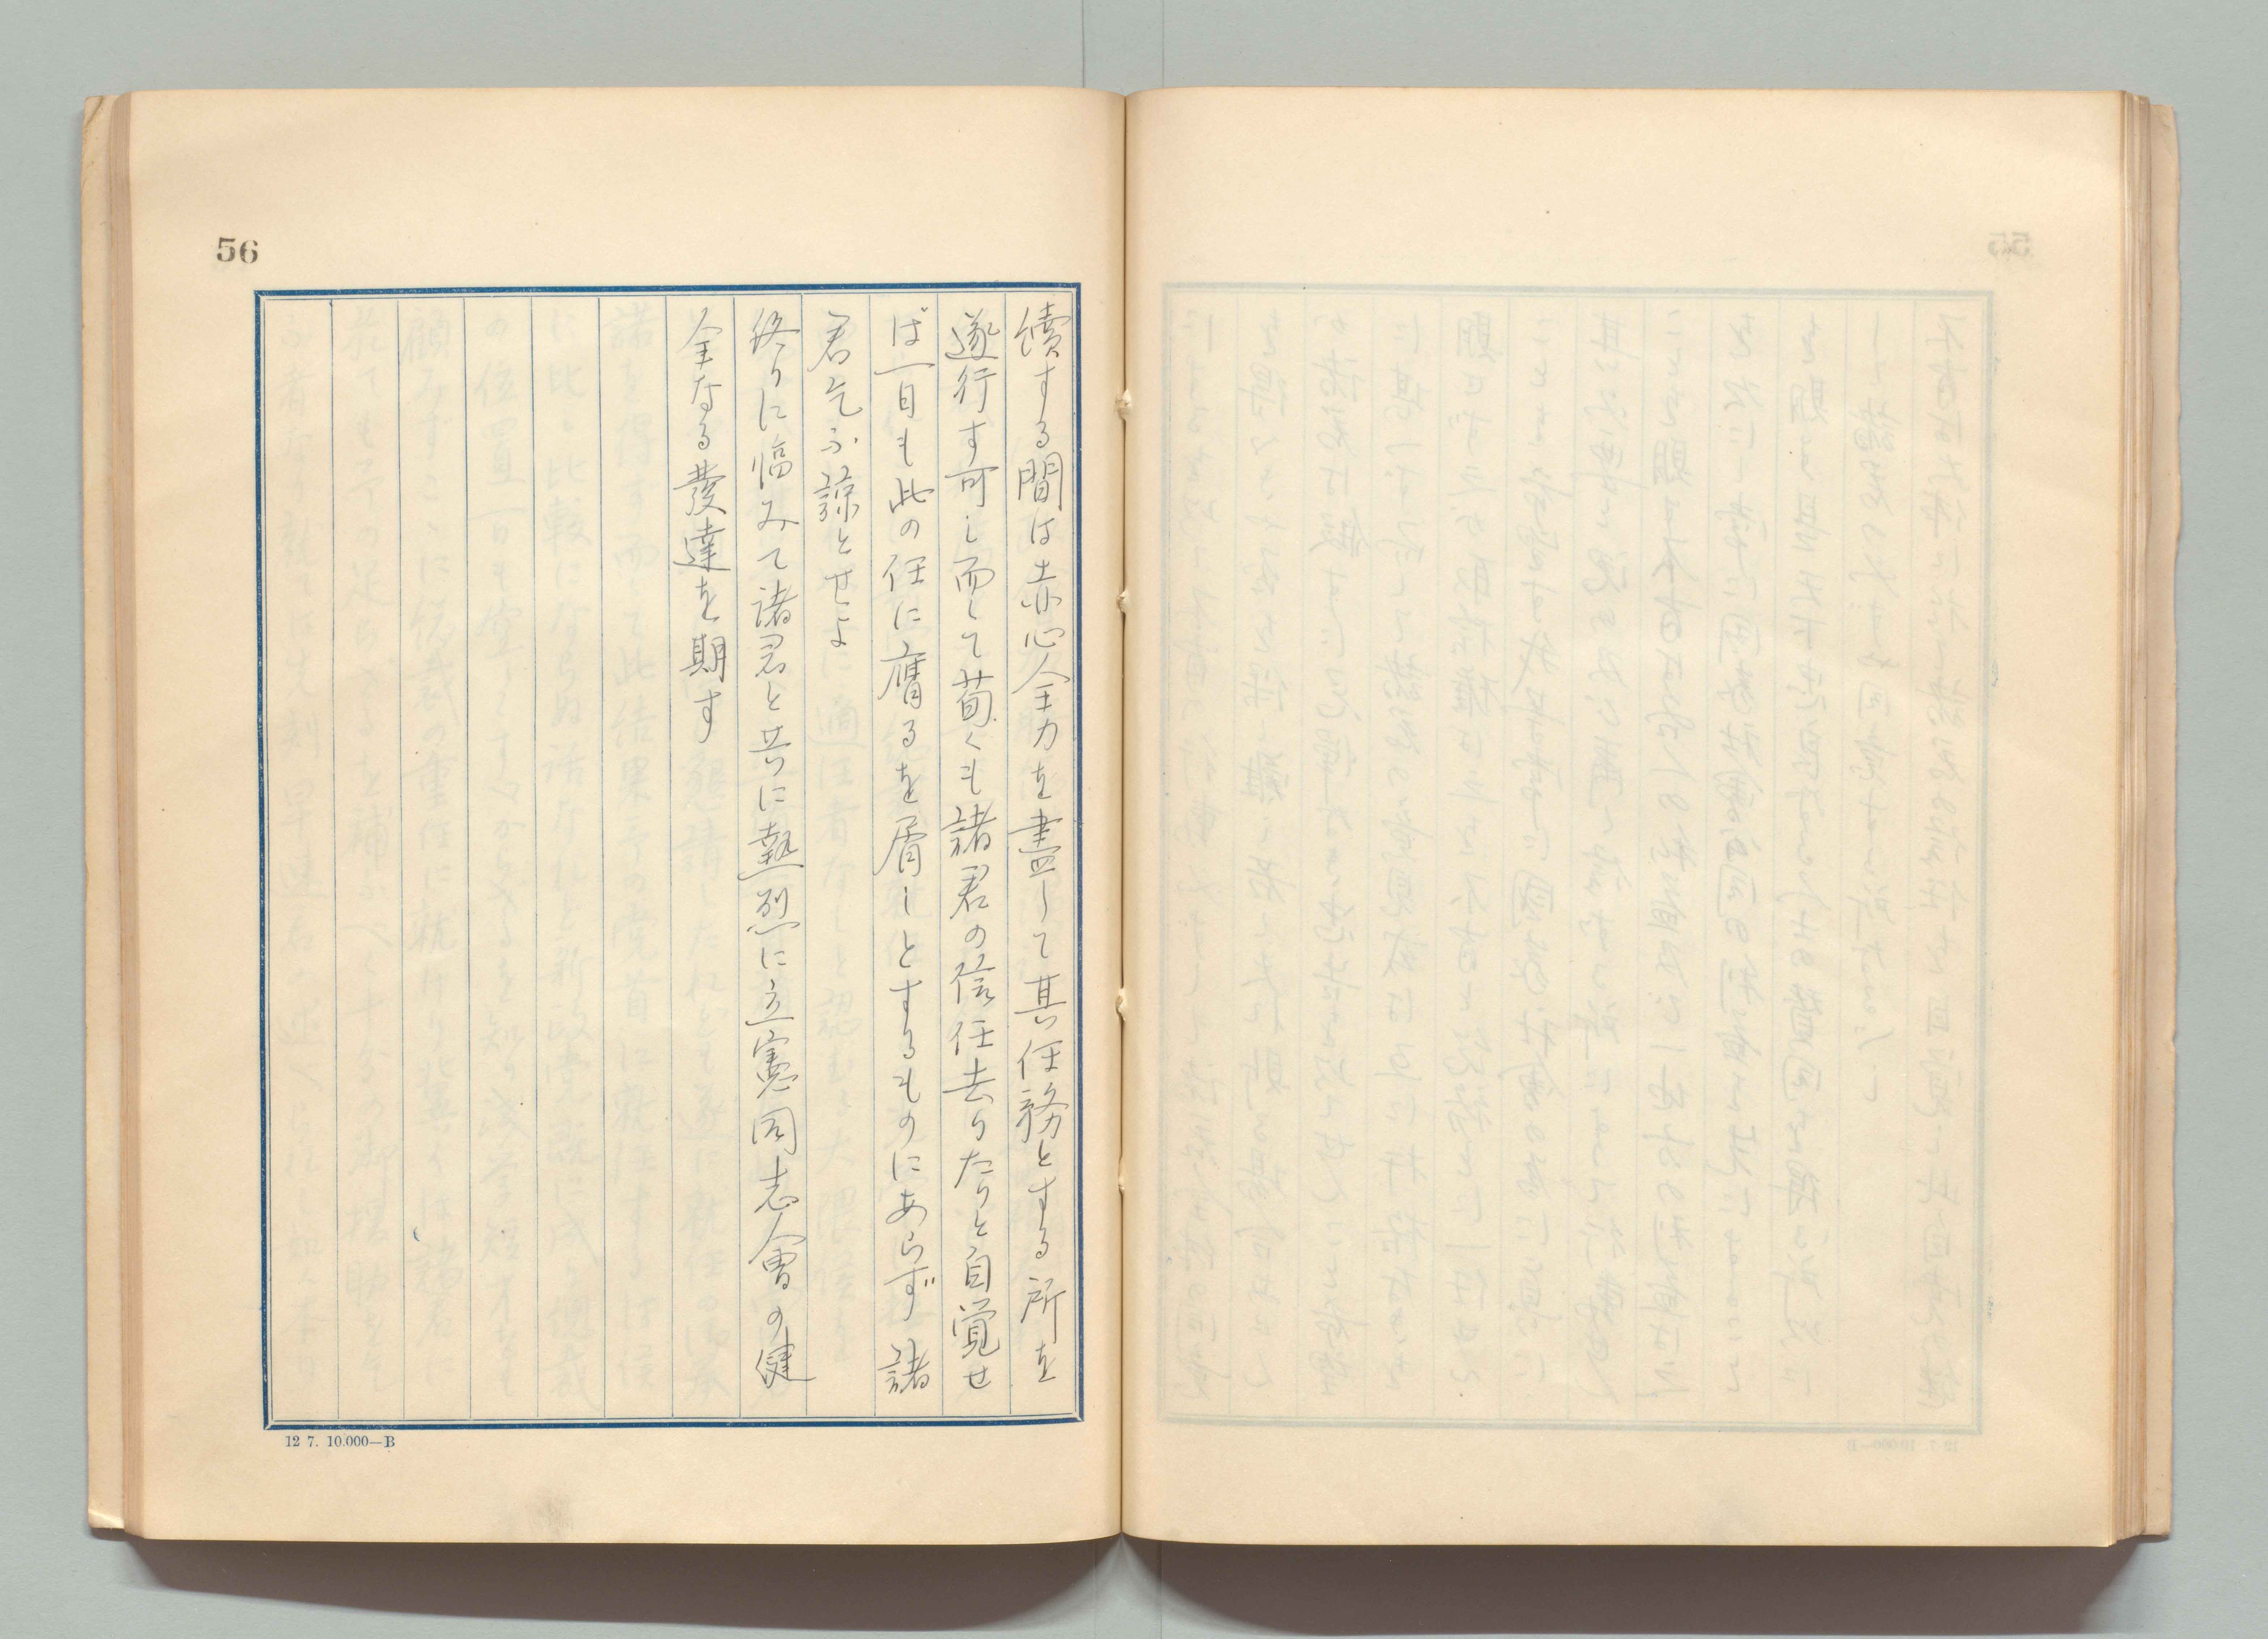 56
續する間は赤心全力を盡して其任務とする所を
遂行す可し而して苟くも諸君の信任去りたりと自覚せ
ば一日も此の任に膺るを屑しとするものにあらず諸
君乞ふ諒とせよ
終りに臨みて諸君と共に熱烈に立憲同志會の健
全なる發達を期す
12 7. 10.000—B